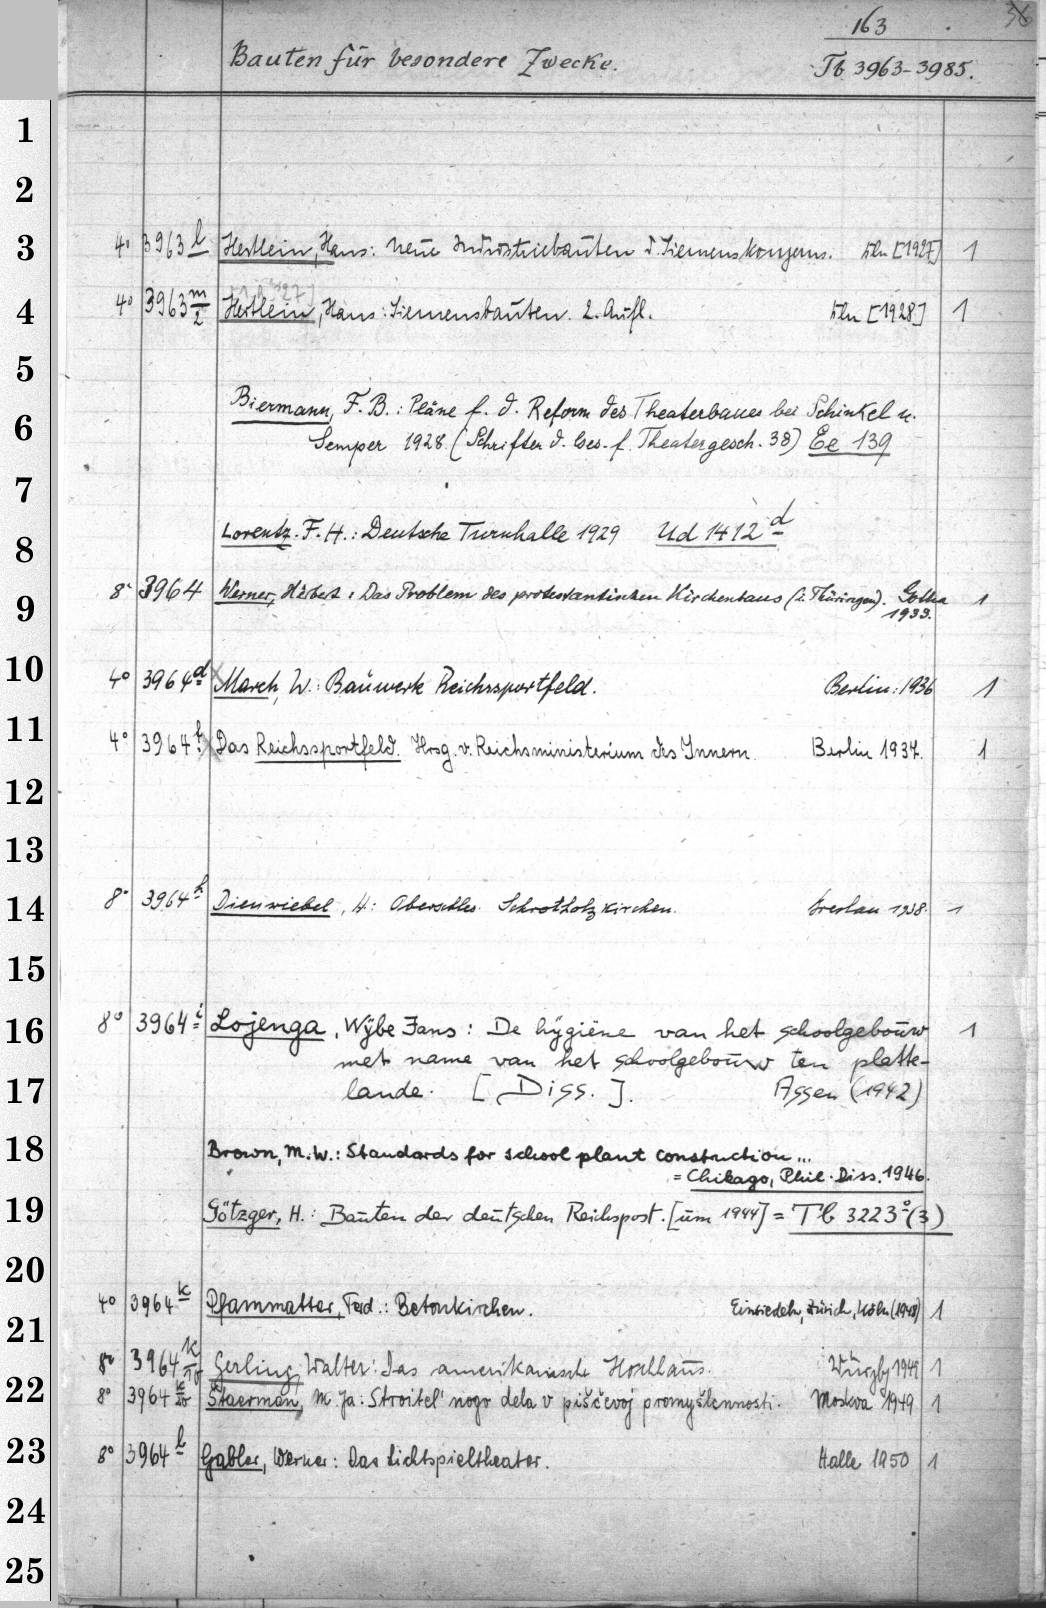 163
36
Bauten für besondere Zwecke.
Tb 3963-3985.
1
2
3 4° 3963 l Hertlein, Hans: Neue Industriebauten d. Siemenskonzerns. Bln [1927] 1
4 4° 3963 m/2 Hertlein, Hans: Siemensbauten. 2. Aufl. Bln [1928] 1
5
Biermann, F. B.: Pläne f. d. Reform des Theaterbaues bei Schinkel u.
6 Semper 1928 (Schriften d. Ges. f. Theatergesch. 38) Ee 139
7
8 Lorentz. F. H.: Deutsche Turnhalle 1929 Ud 1412 d
9 8° 3964 Werner, Herbert: Das Problem des protestantischen Kirchenbaus (i. Thüringen). Gotha
1933. 1
10 4° 3964 d March, W.: Bauwerk Reichssportfeld. Berlin: 1936 1
11 4° 3964 f Das Reichssportfeld. Hrsg. v. Reichsministerium des Innern. Berlin 1937. 1
12
13
14 8° 3964 h Dienwiebel, H: Oberschles. Schrotholzkirchen. Breslau 1938. 1
15
16 8° 3964 i Lojenga, Wÿbe Jans: De hÿgiëne van het schoolgebouw 1
met name van het schoolgebouw ten platte-
17 lande. [Diss.]. Assen (1942)
18 Brown, M. W.: Standards for school plant construction ...
= Chikago, Phil. Diss. 1946.
19 Götzger, H.: Bauten der deutschen Reichspost. [um 1944] = Tb 3223°(3)
20
4° 3964 k Pfammatter, Ferd.: Betonkirchen. Einsiedeln, Zürich, Köln (1948) 1
21
8° 3964 k/10 Gerling, Walter: Das amerikanische Hochhaus. Würzbg 1949 1
22 8° 3964 k/20 Štaerman, M. Ja: Stroitel' nogo dela v piščevoj promyšlennosti. Moskva 1949 1
23 8° 3964 l Gabler, Werner: Das Lichtspieltheater. Halle 1950 1
24
25